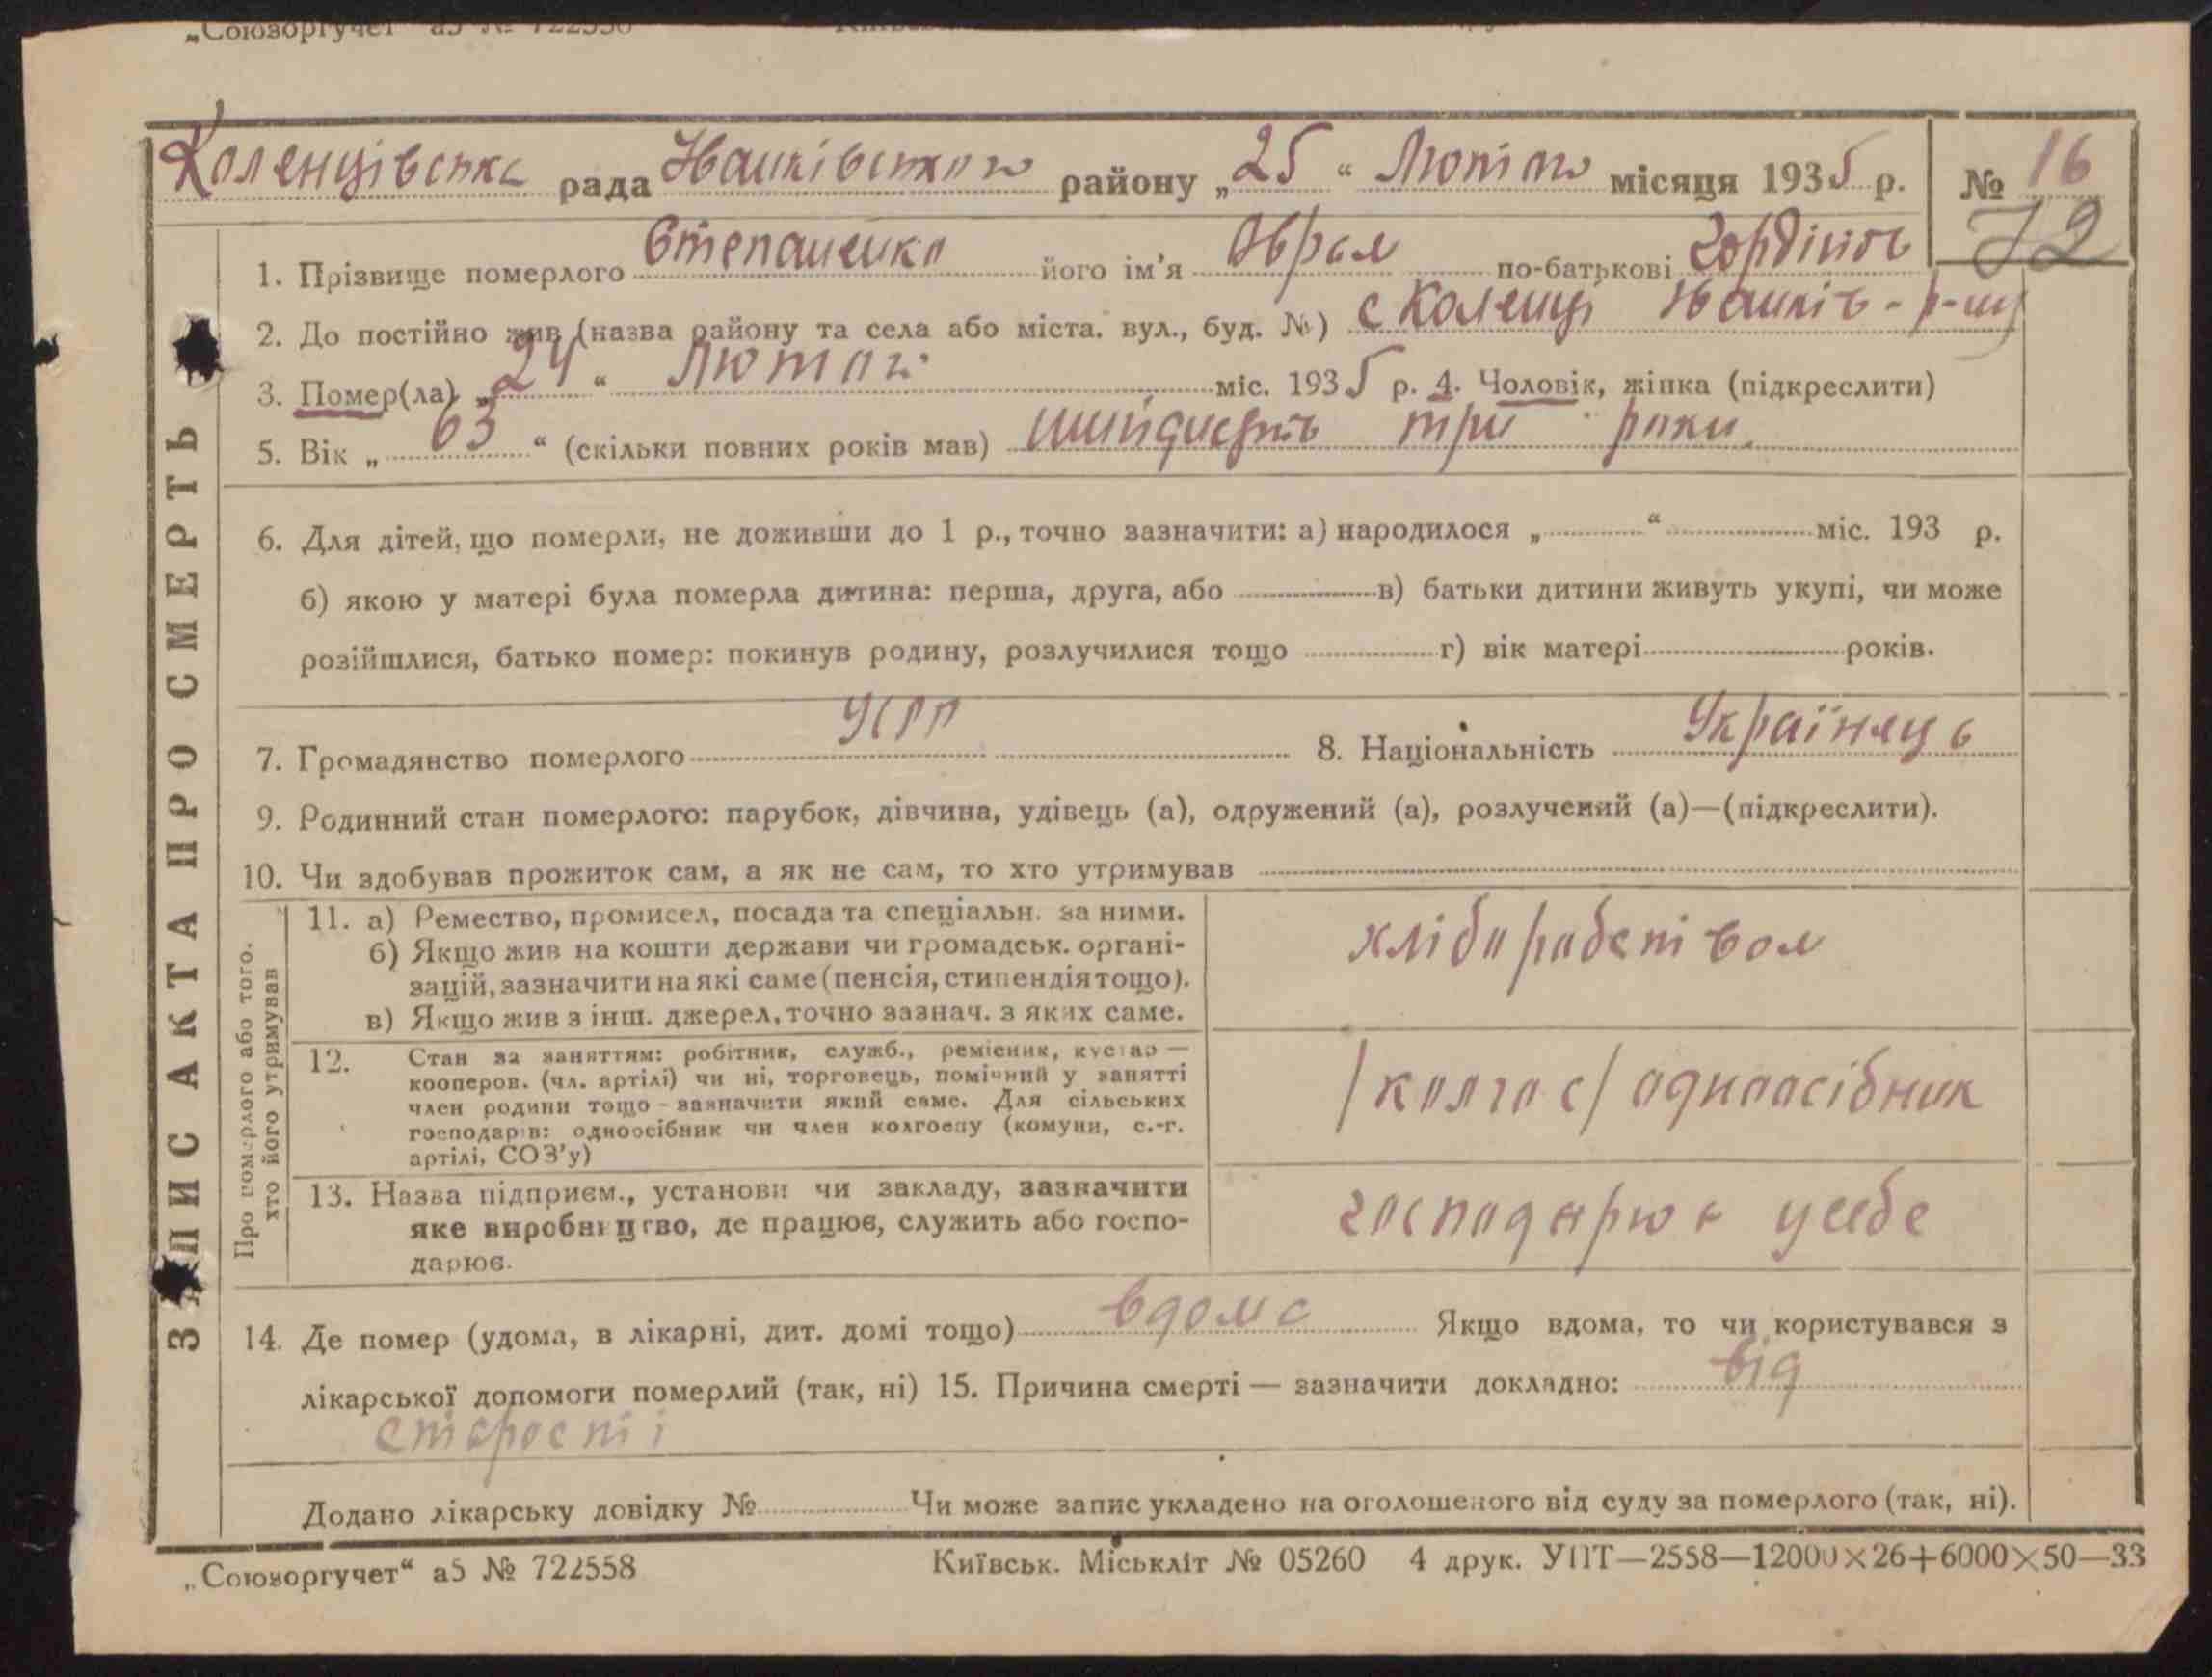 „Союзоргучет" а5 № 722558
Коленцівська рада Іванківського району „25" Лютого місяця 1935 р. № 16
72
1. Прізвище померлого Степаненко його ім'я Аврам по-батькові Гордійов
2. До постійно жив (назва району та села або міста. вул., буд. №) с Коленці Іванків-р-ну
3. Помер(ла) „24" Лютого міс. 1935 р. 4. Чоловік, жінка (підкреслити)
5. Вік „63" (скільки повних років мав) шийдисять три роки.
6. Для дітей, що померли, не доживши до 1 р., точно зазначити: а) народилося „ " міс. 193 р.
б) якою у матері була померла дитина: перша, друга, або в) батьки дитини живуть укупі, чи може
розійшлися, батько помер: покинув родину, розлучилися тощо г) вік матері років.
7. Громадянство померлого УСРР 8. Національність Українець
9. Родинний стан померлого: парубок, дівчина, удівець (а), одружений (а), розлучений (а)—(підкреслити).
10. Чи здобував прожиток сам, а як не сам, то хто утримував
Про померлого або того.
хто його утримував
11. а) Ремество, промисел, посада та спеціальн. за ними.
б) Якщо жив на кошти держави чи громадськ. органі-
зацій, зазначити на які саме (пенсія, стипендія тощо).
в) Якщо жив з інш. джерел, точно зазнач. з яких саме.
хліборобством
12. Стан за заняттям: робітник, служб., ремісник, кустар —
кооперов. (чл. артілі) чи ні, торговець, помічний у занятті
член родини тощо - зазначити який саме. Для сільських
господарів: одноосібник чи член колгоспу (комуни, с.-г.
артілі, СОЗ'у)
/колгос/ одноосібник
13. Назва підприєм., установи чи закладу, зазначити
яке виробництво, де працює, служить або госпо-
дарює.
господарює у себе
14. Де помер (удома, в лікарні, дит. домі тощо) вдома Якщо вдома, то чи користувався з
лікарської допомоги померлий (так, ні) 15. Причина смерті — зазначити докладно: від
старості
Додано лікарську довідку № Чи може запис укладено на оголошеного від суду за померлого (так, ні).
ЗАПИС АКТА ПРО СМЕРТЬ
„Союзоргучет" а5 № 722558 Київськ. Міськліт № 05260 4 друк. УПТ—2558—12000×26+6000×50—33